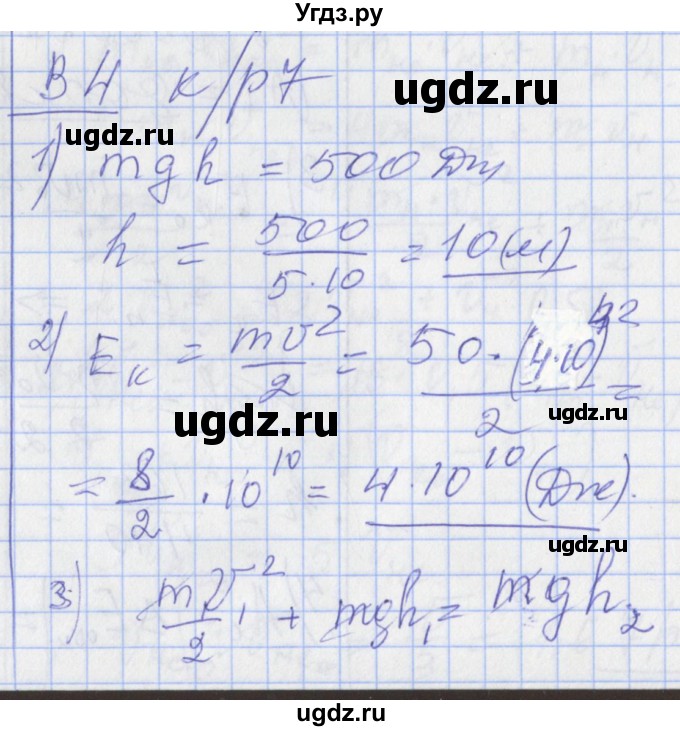 Угдз.ру
В4 к/р7
ugdz.ru
ugdz.ru
1) mgh = 500 Дж
h = 500/5·10 = 10 (м)
ugdz.ru
2) Eк = mv²/2 = 50·(4·10⁴)²/2 =
ugdz.ru
ugdz.ru
= 8/2 · 10¹⁰ = 4·10¹⁰ (Дж).
ugdz.ru
3) mv₁²/2 + mgh₁ = mgh₂
ugdz.ru
ugdz.ru